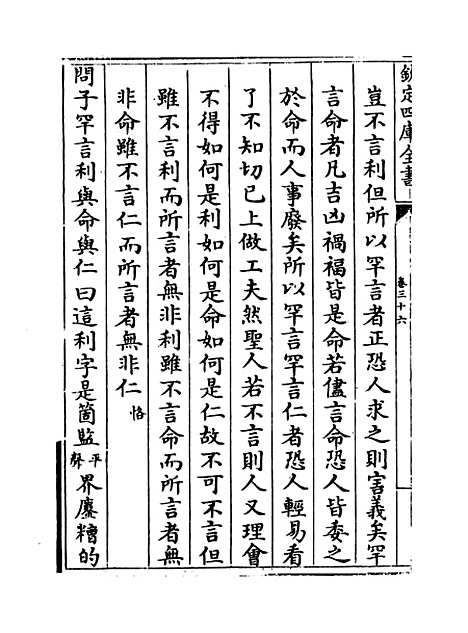 欽定四庫全書
卷三十六
豈不言利但所以罕言者正恐人求之則害義矣罕
言命者凡吉凶禍福皆是命若儘言命恐人皆委之
於命而人事廢矣所以罕言罕言仁者恐人輕易看
了不知切已上做工夫然聖人若不言則人又理會
不得如何是利如何是命如何是仁故不可不言但
雖不言利而所言者無非利雖不言命而所言者無
非命雖不言仁而所言者無非仁恪
問子罕言利與命與仁曰這利字是箇監平聲界鏖糟的